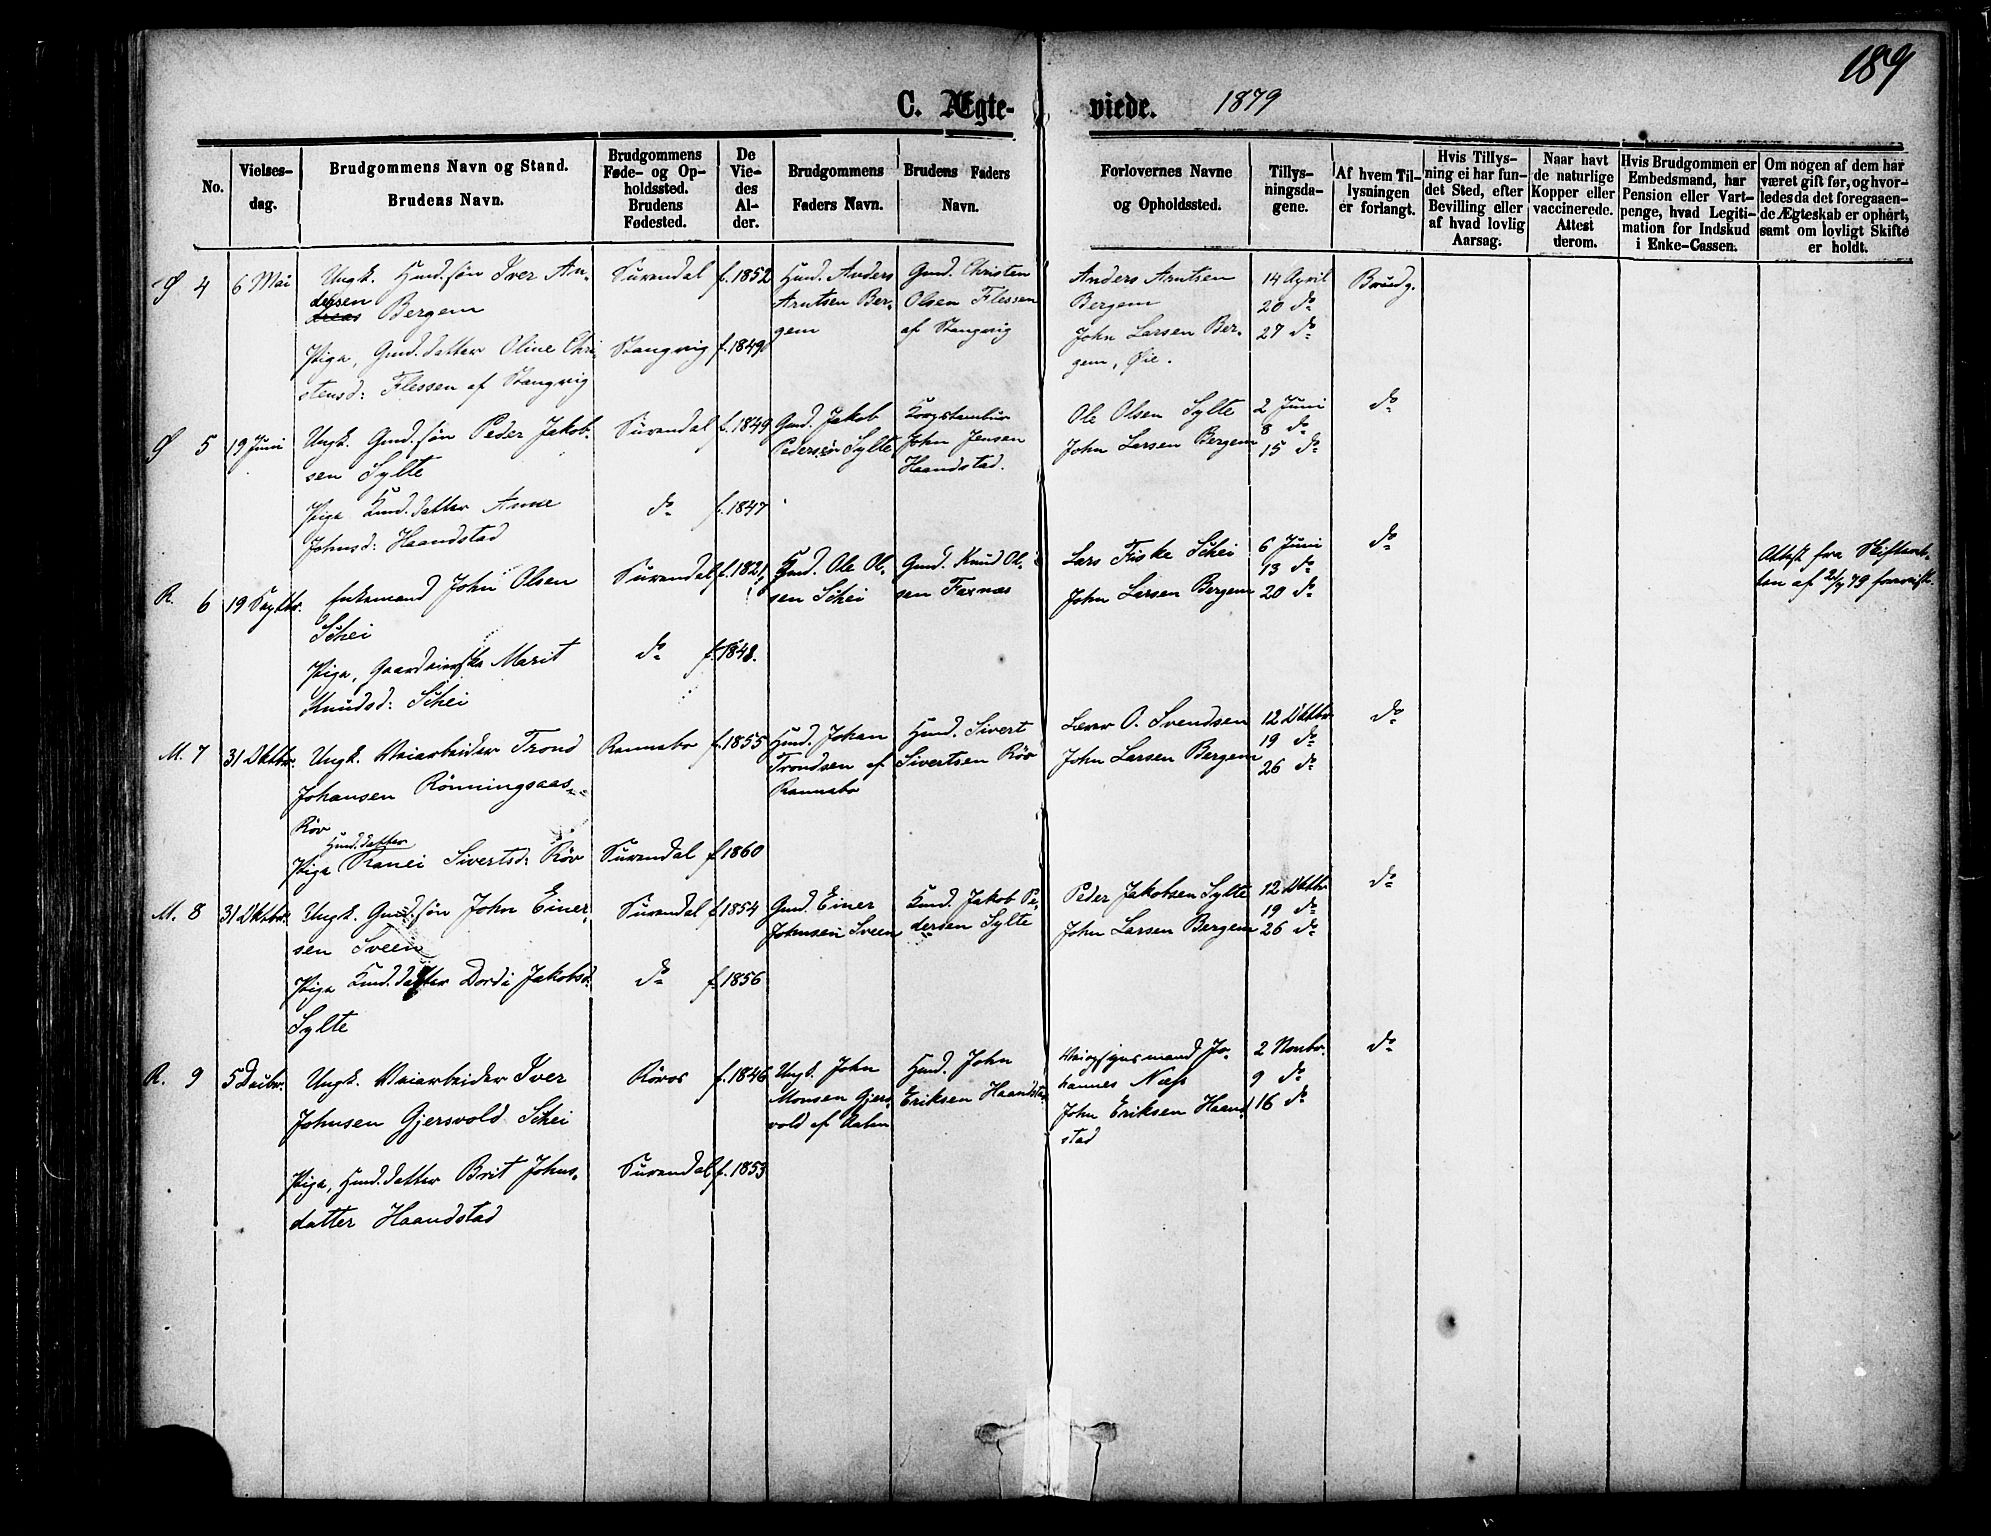 189
C. Ægte-viede. 1879
No.
Vielses-
dag.
Brudgommens Navn og Stand.
Brudens Navn.
Brudgommens
Føde- og Op-
holdssted.
Brudens
Fødested.
De
Vie-
des
Al-
der.
Brudgommens
Faders Navn.
Brudens Faders
Navn.
Forlovernes Navne
og Opholdssted.
Tillys-
ningsda-
gene.
Af hvem Til-
lysningen
er forlangt.
Hvis Tillys-
ning ei har fun-
det Sted, efter
Bevilling eller
af hvad lovlig
Aarsag.
Naar havt
de naturlige
Kopper eller
vaccinerede.
Attest
derom.
Hvis Brudgommen er
Embedsmand, har
Pension eller Vart-
penge, hvad Legiti-
mation for Indskud
i Enke-Cassen.
Om nogen af dem har
været gift før, og hvor-
ledes da det foregaaen-
de Ægteskab er ophørt,
samt om lovligt Skifte
er holdt.
Ø 4
6 Mai
Ungk. Husd.søn Iver An-
dersen
Bergem
Pige, Gmd.datter Oline Chri-
stensd: Flessen af Stangvig
Surendal
Stangvig
f.1852
f.1849
Husd. Anders
Arntsen Ber-
gem
Gmd. Christen
Olsen Flessen
af Stangvig
Anders Arntsen
Bergem
John Larsen Ber-
gem, Øie.
14 April
20 do
27 do
Brudg.
Ø 5
19 Juni
Ungk. Gmd.søn Peder Jakob-
sen Sylte
Pige Husd.datter Anne
Johnsd: Haandstad
Surendal
do
f.1849
f.1847
Gmd. Jakob
Pedersen Sylte
John Jensen
Haandstad.
Ole Olsen Sylte
John Larsen Bergem
2 Juni
8 do
15 do
do
R. 6
19 Septbr.
Enkemand John Olsen
Schei
Pige, Marit
Knudsd: Schei
Surendal
do
f.1821
f.1848.
Gmd. Ole Ol-
sen Schei
Gmd. Knud Ol-
sen Faxnæs
Lars Fiske Schei
John Larsen Bergem
6 Juni
13 do
20 do
do
Attest fra Skifteret-
ten af
M. 7
31 Oktbr.
Ungk. Veiarbeider Trond
Johansen Rönningsaas-
Röv
Husd.datter
Pige Ranei Sivertsd: Röv
Rennebo
Surendal
f.1855
f.1860
Husd. Johan
Trondsen af
Rennebo
Husd. Sivert
Sivertsen Röv
Lærer O. Svendsen
John Larsen Bergem
12 Oktbr
19 do
26 do
do
M. 8
31 Oktbr.
Ungk. Gmd.søn John Einer-
sen Sveen
Pige Husd.datter Dordi Jakobsd:
Sylte
Surendal
do
f.1854
f.1856
Gmd. Einer
Johnsen Sveen
Husd. Jakob Pe-
dersen Sylte
Peder Jakobsen Sylte
John Larsen Bergem
12 Oktbr
19 do
26 do
do
R. 9
5 Decbr.
Ungk. Veiarbeider Iver
Johnsen Gjersvold Schei
Pige, Husd.datter Brit Johns-
datter Haandstad
Röros
Surendal
f.1846
f.1853
Ungk. John
Monsen Gjers-
vold af Aalen
Husd. John
Eriksen Haandstad
Veiopsynsmand Jo-
hannes Næss
John Eriksen Haand-
stad
2 Novbr.
9 do
16 do
do